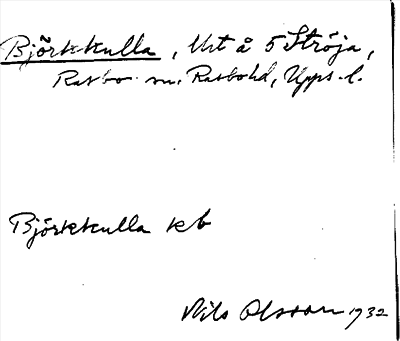 Björkkulla, Urt å 5 Ströja,
Rasbo sn, Rasbohd, Upps. l.
Björkkulla kb
Nils Olsson 1932